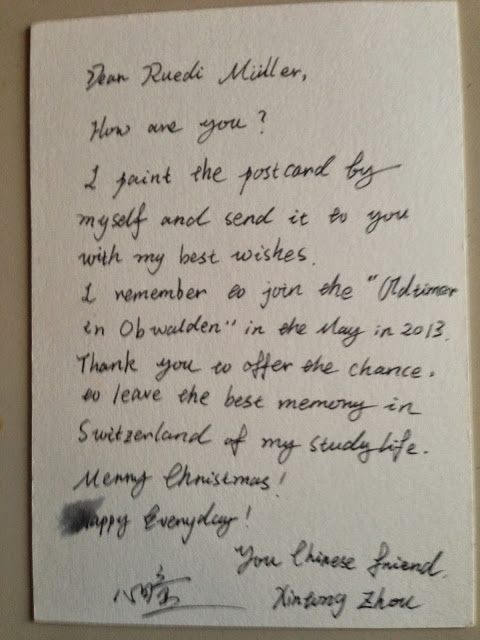 Dear Ruedi Müller,
How are you?
I paint the postcard by
myself and send it to you
with my best wishes.
I remember to join the "Oldtimer
in Obwalden" in the May in 2013.
Thank you to offer the chance.
to leave the best memory in
Switzerland of my study life.
Merry Christmas!
Happy Everyday!
You Chinese friend.
Xintong Zhou